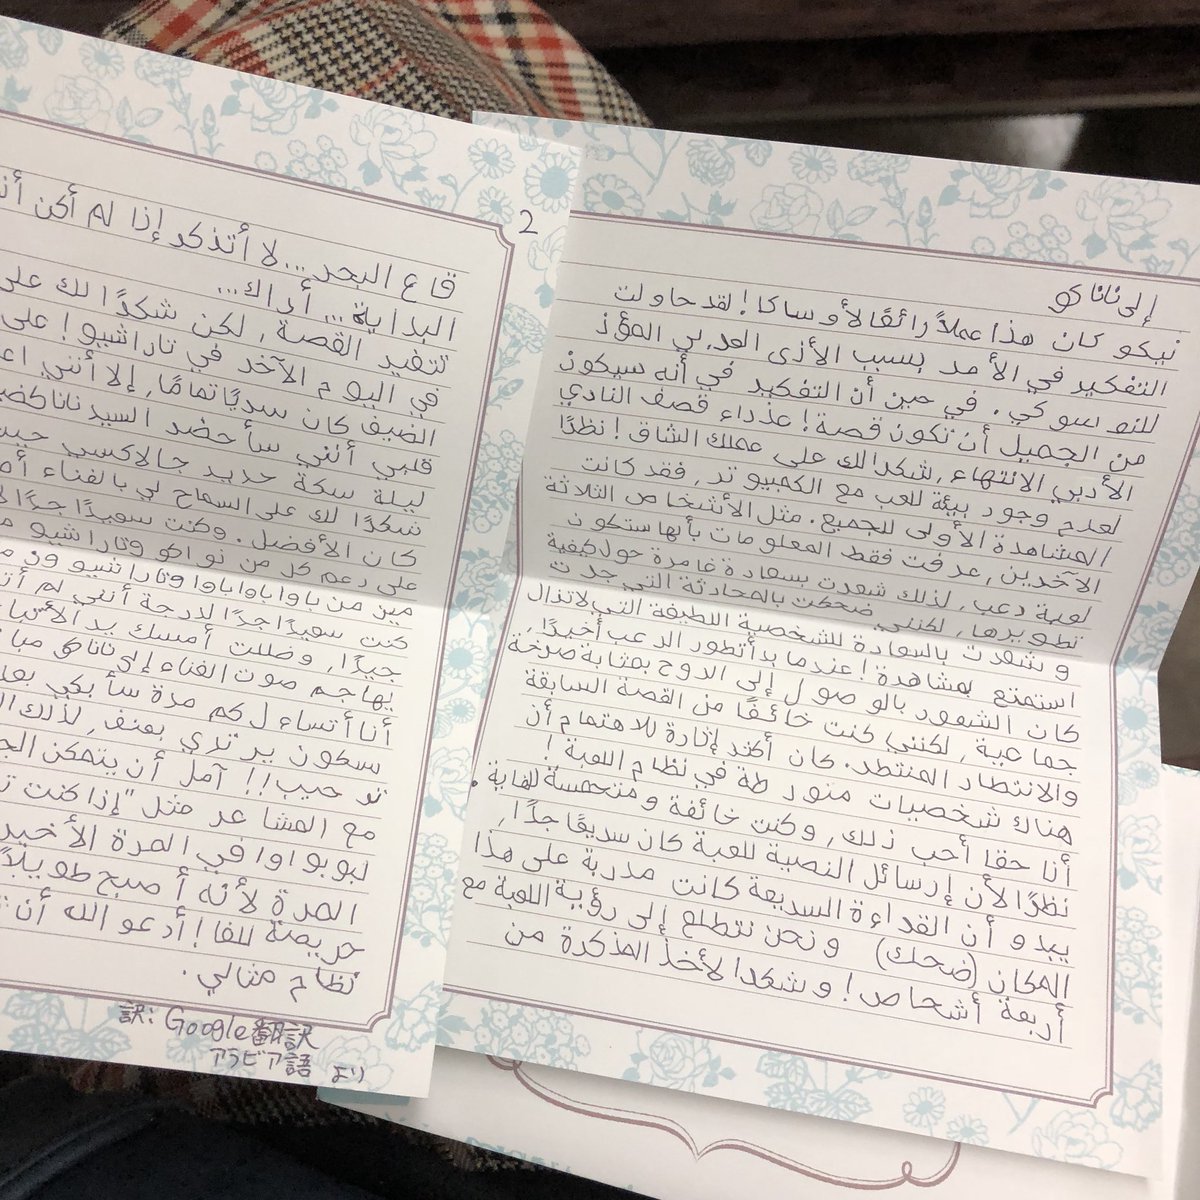 إلى ناناكو
نيكو كان هذا عملاً رائعًا لأوساكا! لقد حاولت
التفكير في الأمر بسبب الأذى العربي المؤذ
للنوسوكي. في حين أن التفكير في أنه سيكون
من الجميل أن تكون قصة! عذراء قصف النادي
الأدبي الانتهاء, شكرالك على عملك الشاق! نظرًا
لعدم وجود بيئة للعب مع الكمبيوتر, فقد كانت
المشاهدة الأولى للجميع. مثل الأشخاص الثلاثة
الآخرين, عرفت فقط المعلومات بأنها ستكون
لعبة رعب, لذلك شعرت بسعادة غامرة حول كيفية
تطويرها, لكنني ضحكت بالمحادثة التي جرت
وشعرت بالسعادة للشخصية اللطيفة التي لاتزال
استمتع بمشاهدة! عندما بدأ تطور الرعب أخيرًا,
كان الشعور بالوصول إلى الروح بمثابة صرخة
جماعية, لكنني كنت خائفًا من القصة السابقة
والانتظار المنتظر. كان أكثر إثارة للاهتمام أن
هناك شخصيات متورطة في نظام اللعبة!
أنا حقا أحب ذلك, وكنت خائفة ومتحمسة للغاية.
نظرًا لأن إرسائل النصية للعبة كان سريعًا جدًا,
يبدو أن القراءة السريعة كانت مدربة على هذا
المكان (ضحك) ونحن نتطلع إلى رؤية اللعبة مع
أربعة أشخاص! وشكرا لأخذ المذكرة من
2
قاع البحر... لا أتذكر إذا لم أكن
البداية... أراك...
لتغير القصة, لكن شكرًا لك على
في اليوم الآخر في تاراشيو! على
الضيف كان سريًا تمامًا, إلا أنني
قلبي أنني سأحضر السيد ناناكو
ليلة سكة حديد جالاكسي
شكرًا لك على السماح لي بالغناء
كان الأفضل. وكنت سعيدًا جدًا
على دعم كل من نواكو وتاراشيو
مين من باواباواباوا وتاراشيو
كنت سعيدًا جدًا لدرجة أنني لم
جيدًا, وظللت أمسك يد
يهاجم صوت الغناء إلى ناناكو
أنا أتساءل كم مرة سأبكي
سكون يرتدي بعنف, لذلك
ترحيب!! آمل أن يتمكن
مع المشاعر مثل "إذا كنت
لبوبواوا في المرة الأخيرة
المرة لأنه أصبح طويلاً
حريصة للغا! أدعو الله أن
نظام مثالي.
訳: Google翻訳
アラビア語 より